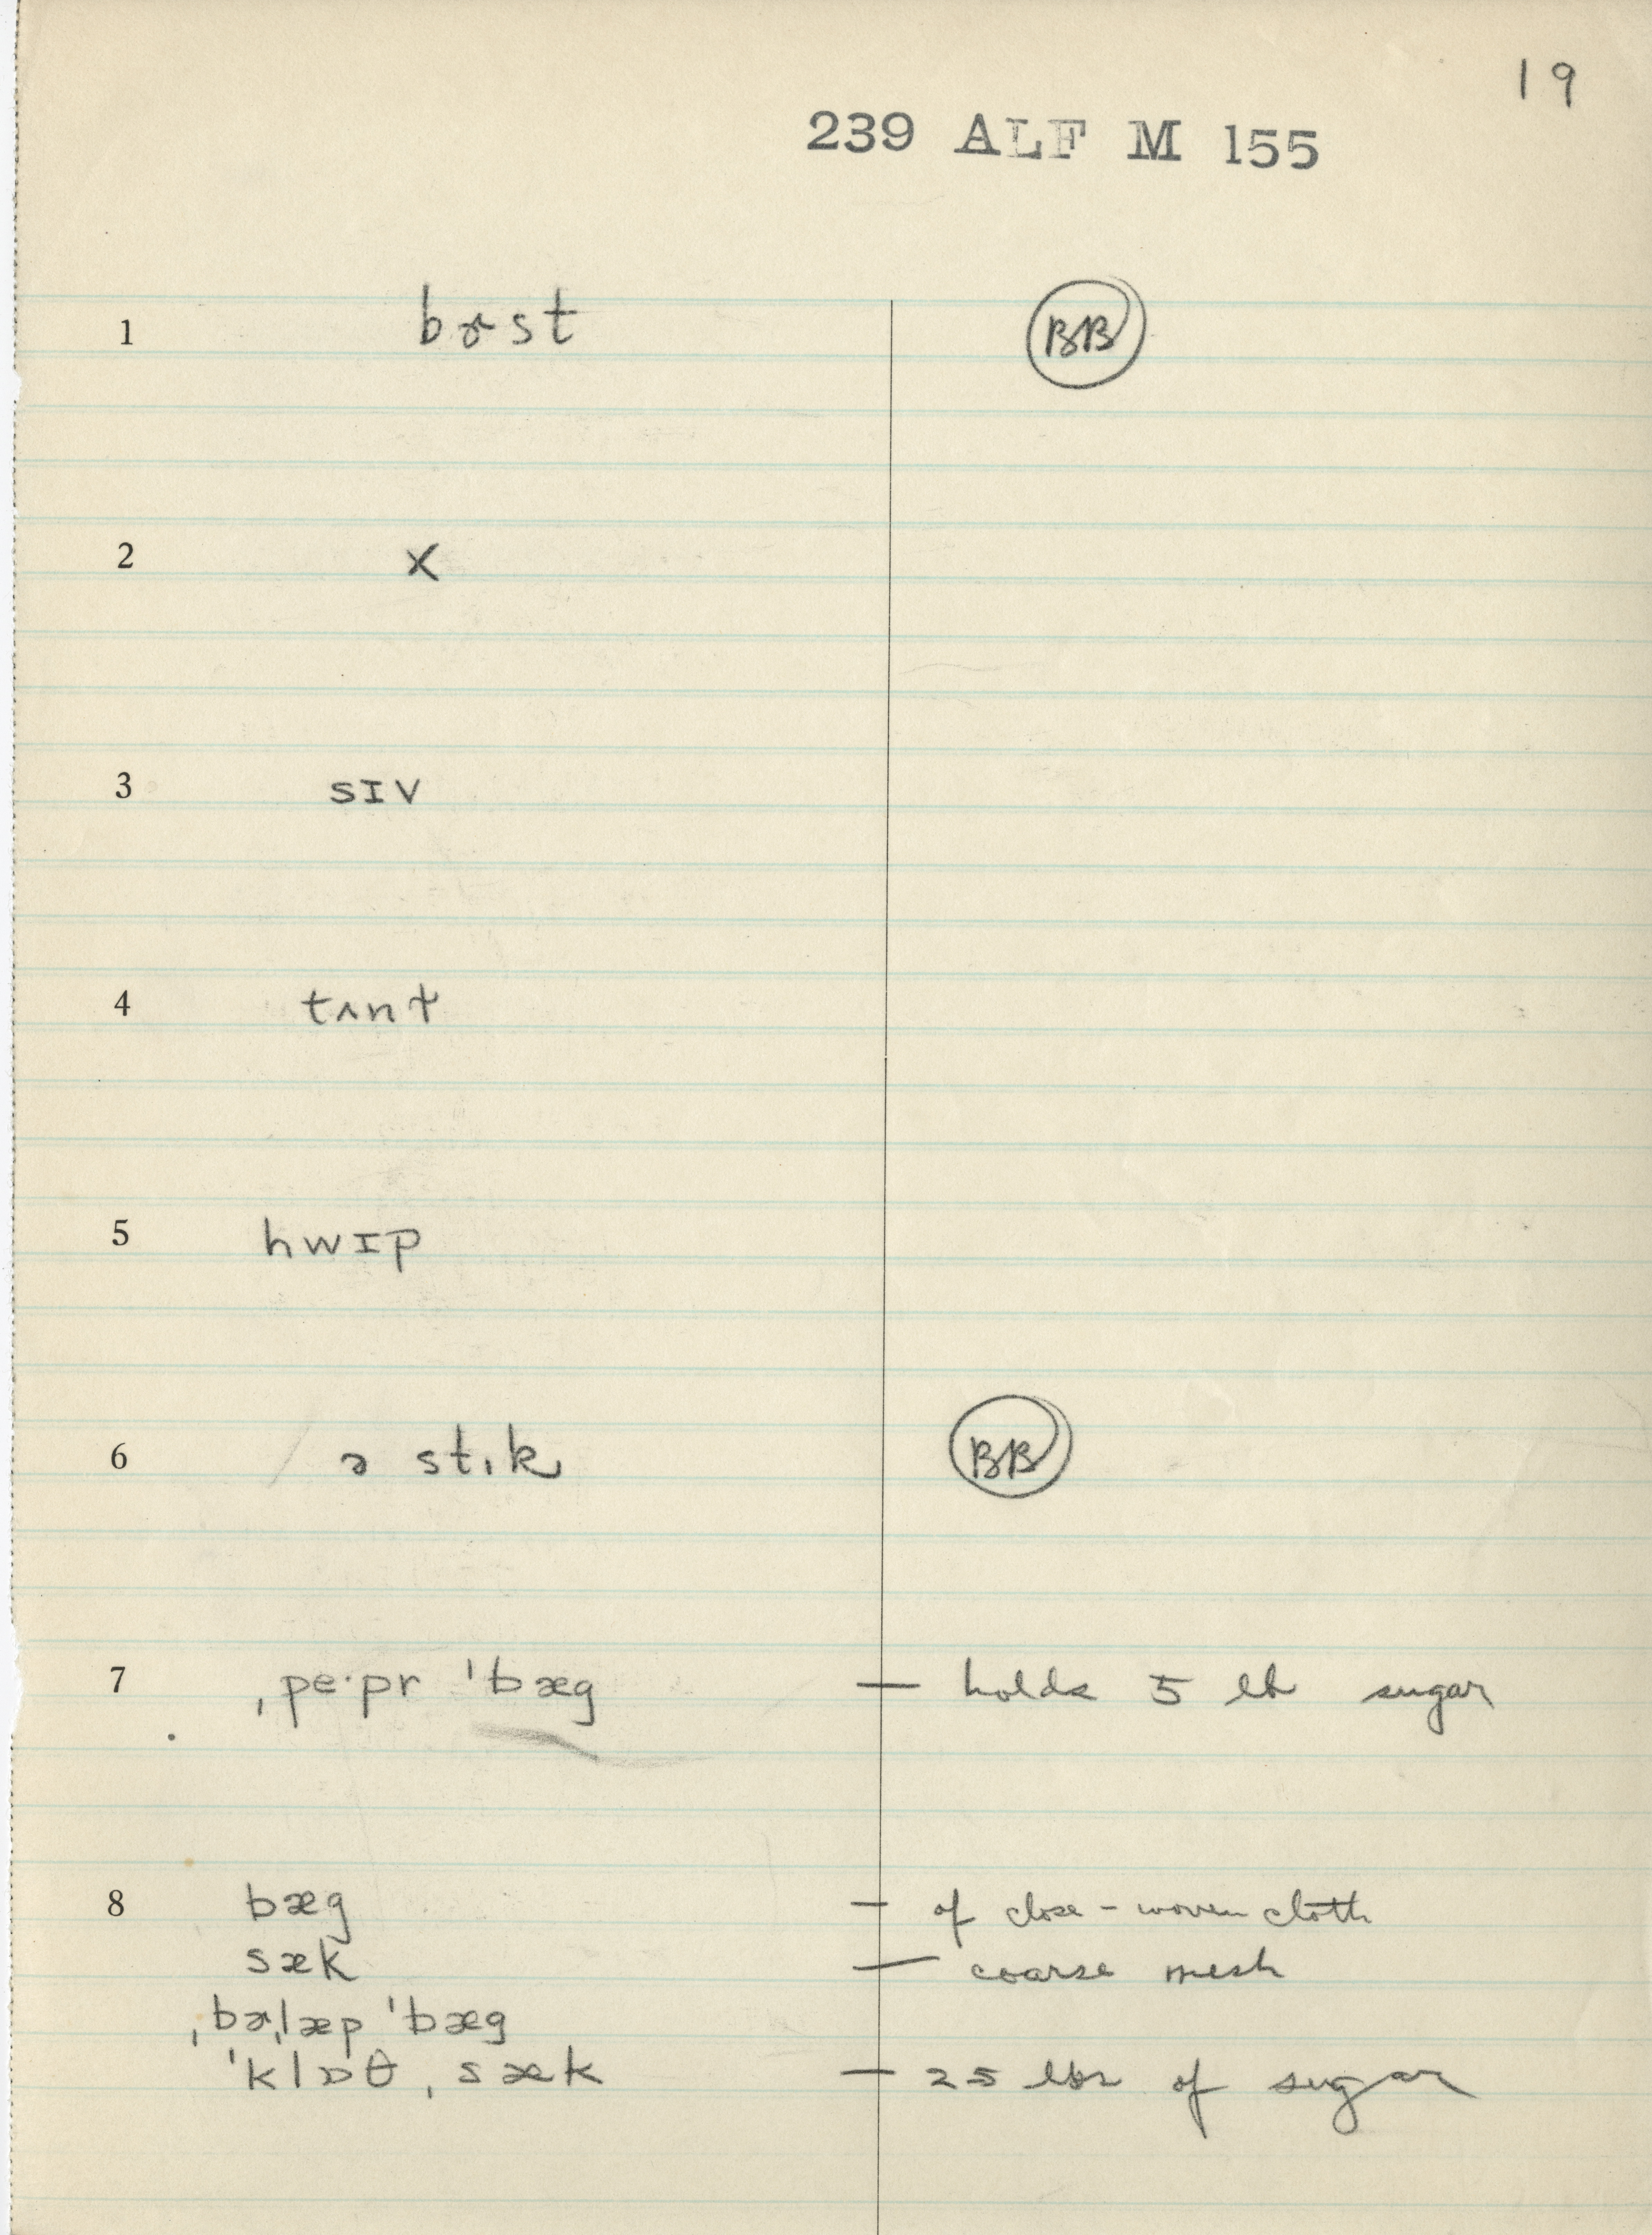 19
239 ALF M 155
1 bɚst BB
2 X
3 sɪv
4 tʌnt
5 hwɪp
6 ə stɩk BB
7 ˌpe·pr ˈbæg — holds 5 lb sugar
8 bæg — of close-woven cloth
sæk — coarse mesh
ˌbɚˌlæp ˈbæg
ˈklɒθˌsæk — 25 lbs of sugar